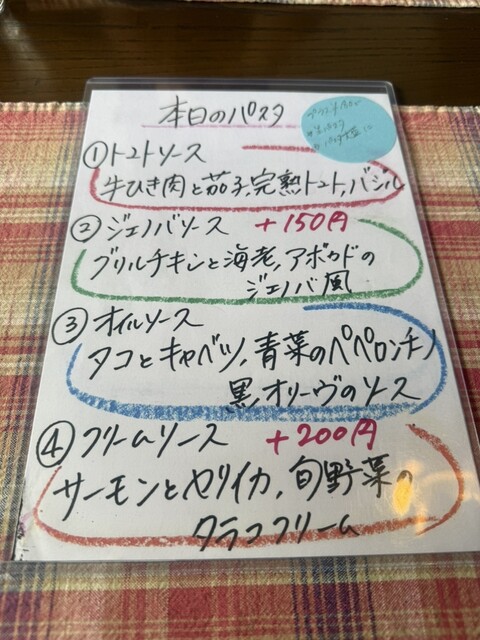 本日のパスタ
①トマトソース
牛ひき肉と茄子、完熟トマト、バジル
②ジェノバソース +150円
グリルチキンと海老、アボカドの
ジェノバ風
③オイルソース
タコとキャベツ、青菜のペペロンチーノ
黒オリーヴのソース
④クリームソース +200円
サーモンとヤリイカ、旬野菜の
タラコクリーム